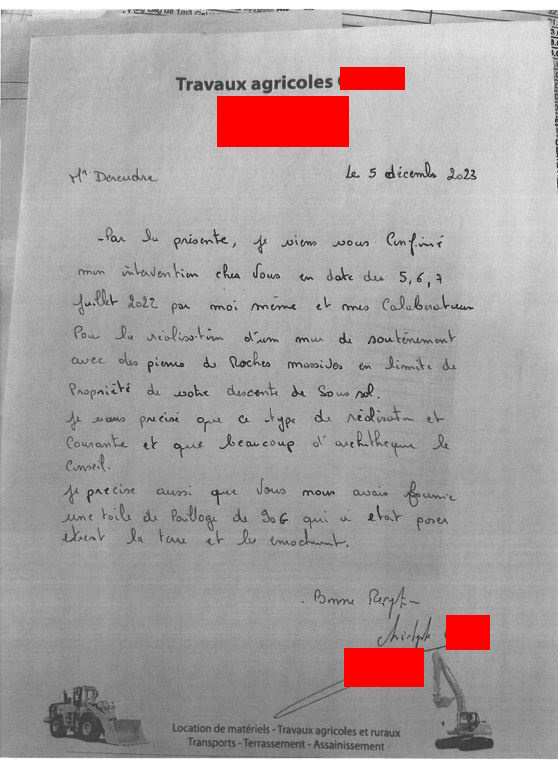 Travaux agricoles
Mr Dereudre
Le 5 décembre 2023
-Par la présente, je viens vous Confirmé
mon intervention chez Vous en date du 5, 6, 7
juillet 2022 par moi même et mes Calaborateur
Pour la réalisation d'un mur de souténement
avec des pierres de Roches massives en limite de
Propriété de votre descente de Sous sol.
je vous précise que ce type de réalisation et
Courante et que beaucoup d'architheque le
Conseil.
je précise aussi que Vous nous avais fournie
une toile de Paillage de 90G qui a était poser
entre la terre et les enrochement.
Bonne Reception
Christophe
Location de matériels - Travaux agricoles et ruraux
Transports - Terrassement - Assainissement